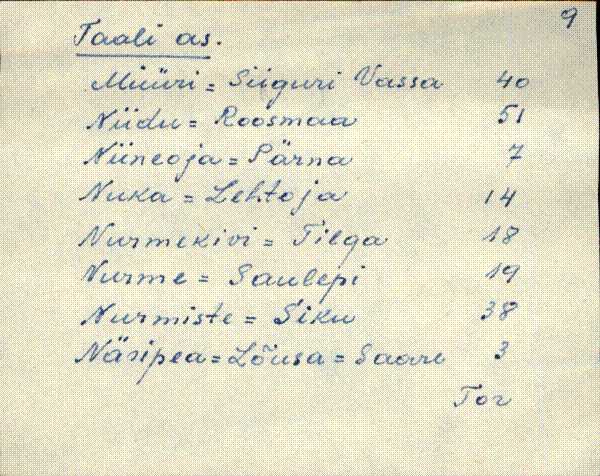 9
Taali as.
Müüri = Siiguri Vassa 40
Niidu = Roosmaa 51
Niineoja = Pärna 7
Nuka = Lehtoja 14
Nurmekivi = Tilga 18
Nurme = Saulepi 19
Nurmiste = Siku 38
Näripea = Lõusa = Saare 3
Tor